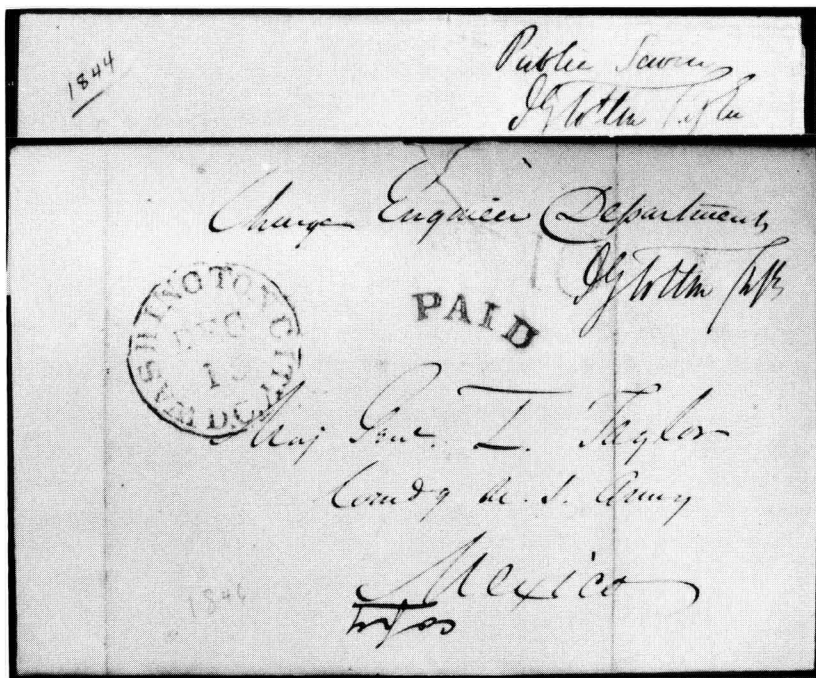 1844
Public Service
JG Totten
Charge Engineer Department
JG Totten
WASHINGTON CITY D.C.
DEC
PAID
10
Maj Genl. Z. Taylor
Comdg U. S. Army
Mexico
1846